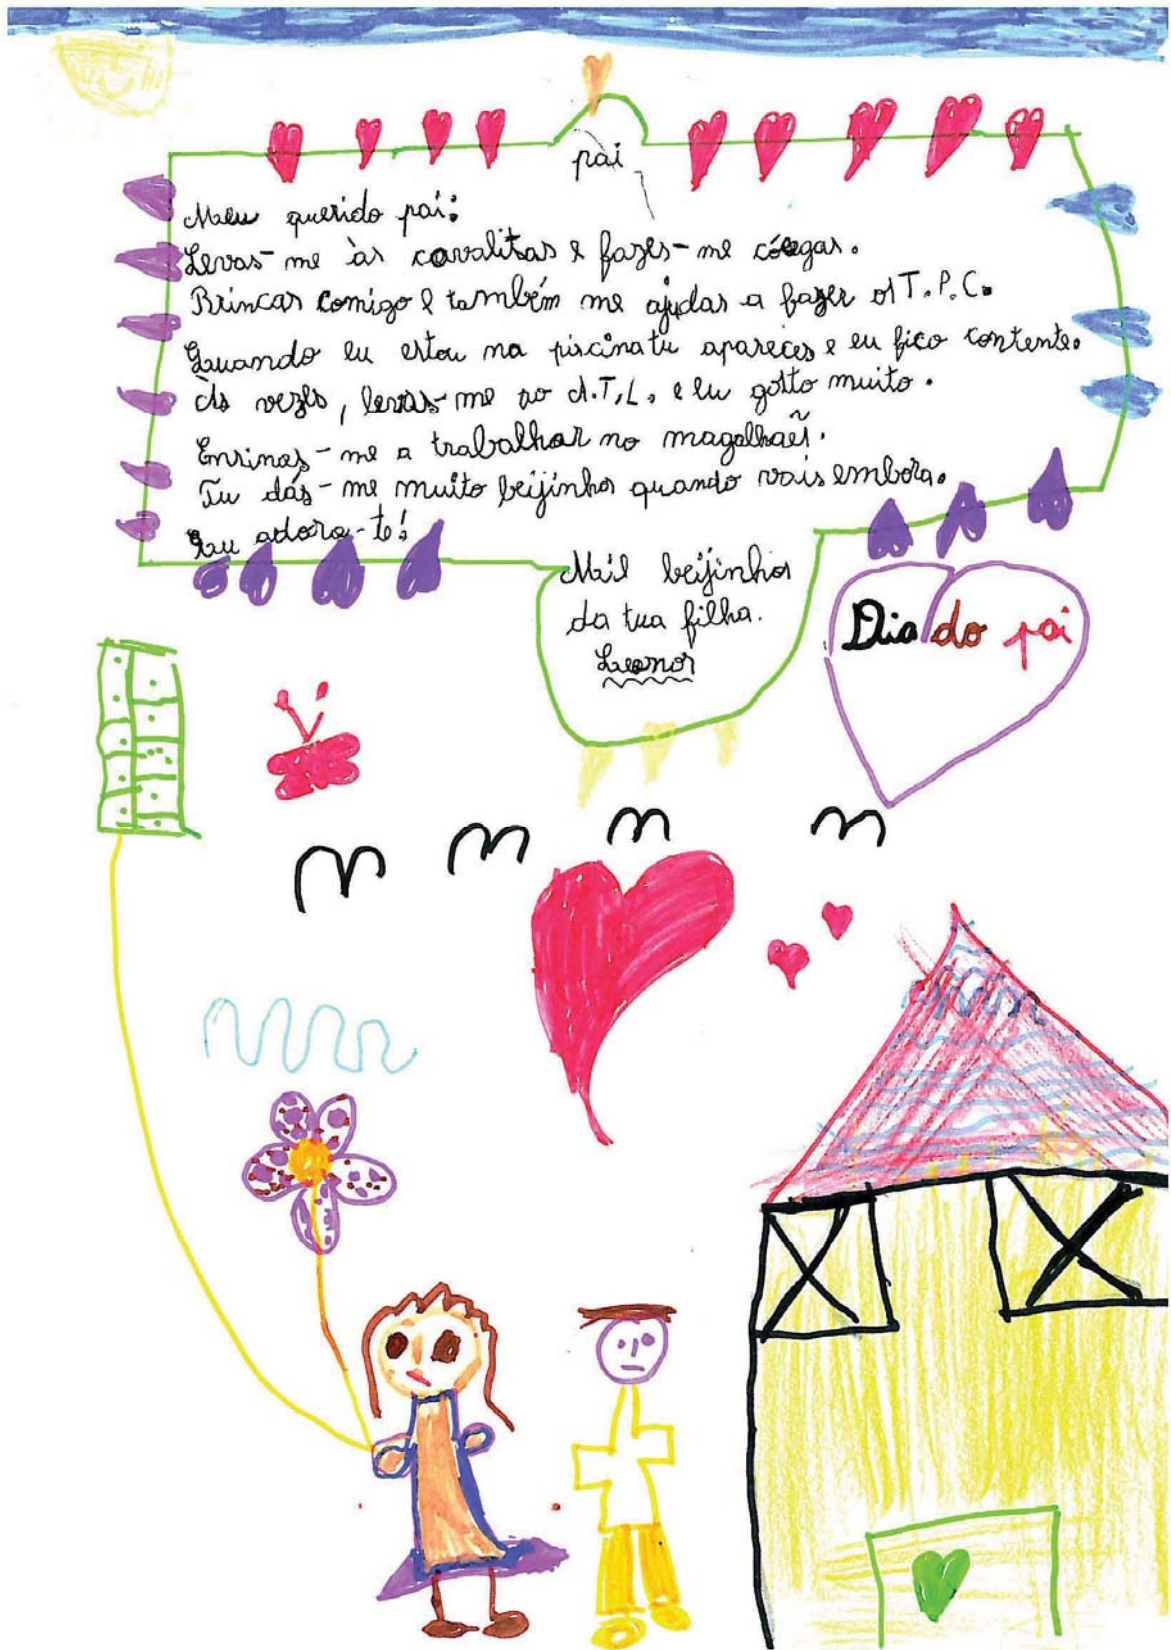 pai
Meu querido pai:
Levas-me às cavalitas e fazes-me cócegas.
Brincas comigo e também me ajudas a fazer os T.P.C.
Quando eu estou na piscina tu apareces e eu fico contente.
Às vezes, levas-me ao A.T.L. e eu gosto muito.
Ensinas-me a trabalhar no magalhães.
Tu dás-me muito beijinhos quando vais embora.
Eu adoro-te!
Mil beijinhos
da tua filha.
Leonor
Dia do pai